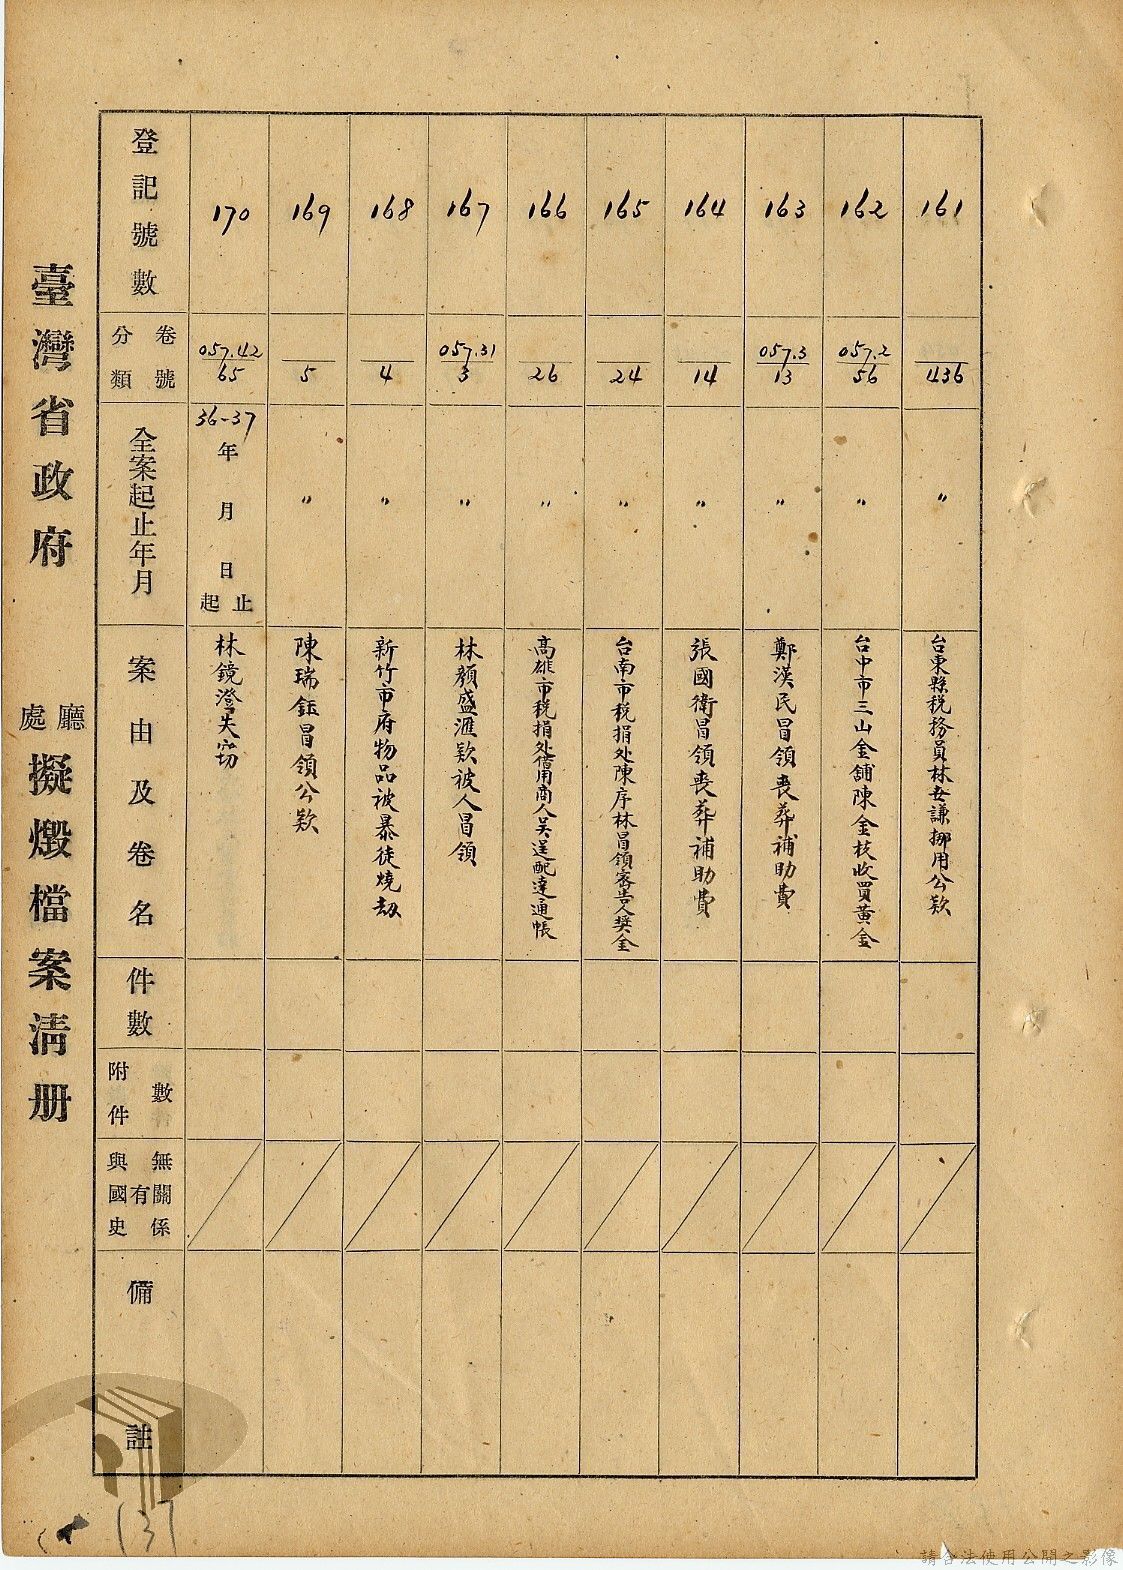 臺灣省政府 廳處 擬燬檔案清册
登記號數
卷號分類
全案起止年月
案由及卷名
件數
附件數
與國史有無關係
備註
170
057.42
65
36-37
年月日起止
林鏡澄失竊
169
5
〃
陳瑞鉦冒領公欵
168
4
〃
新竹市府物品被暴徒燒劫
167
057.31
3
〃
林顏盛滙欵被人冒領
166
26
〃
高雄市税捐处借用商人吳送配達通帳
165
24
〃
台南市税捐处陳序林冒領密告人獎金
164
14
〃
張國衛冒領丧葬補助費
163
057.3
13
〃
鄭漢民冒領丧葬補助費
162
057.2
56
〃
台中市三山金舖陳金枝收買黃金
161
436
〃
台東縣税務員林安謙挪用公欵
137
請合法使用公開之影像